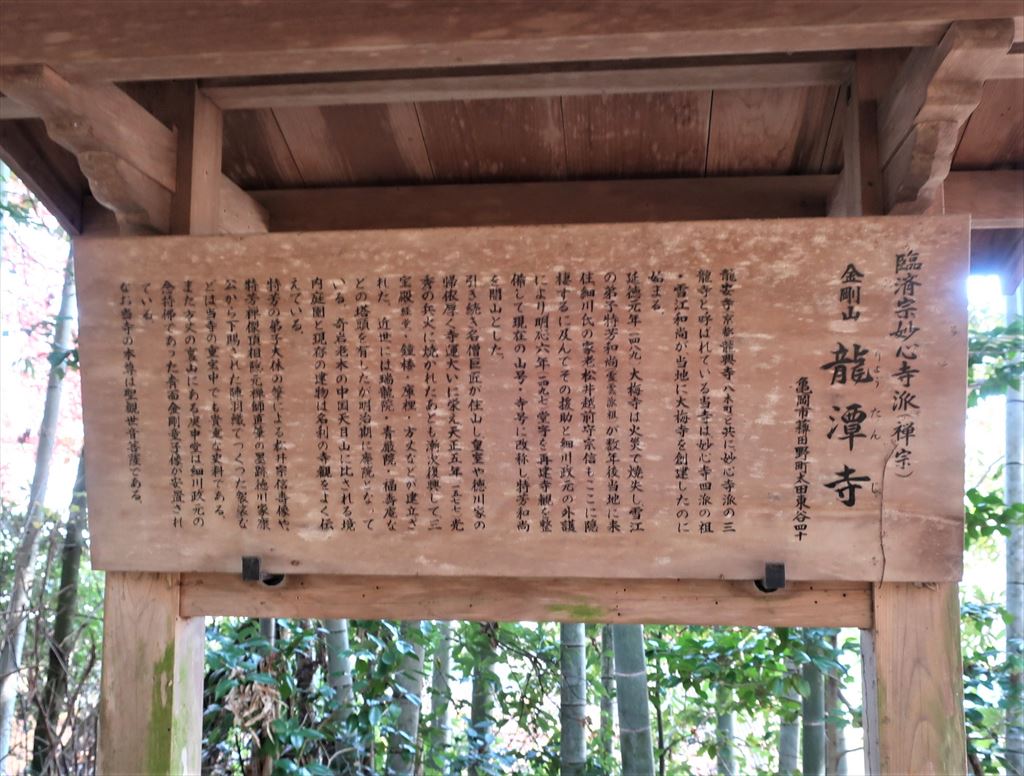 臨済宗妙心寺派(禅宗)
金剛山 龍潭寺
りょう たん じ
亀岡市薭田野町太田東谷四十
龍安寺(京都)龍興寺(八木町)と共に妙心寺派の三
龍寺と呼ばれている当寺は妙心寺四派の祖
・雪江和尚が当地に大梅寺を創建したのに
始まる。
延徳元年(一四八九)大梅寺は火災で焼失し雪江
の弟子特芳和尚(霊雲派祖)が数年後当地に来
住細川氏の家老松井越前守宗信もここに隠
棲するに及んでその援助と細川政元の外護
により明応六年(一四九七)堂宇を再建寺観を整
備して現在の山号・寺号に改称し特芳和尚
を開山とした。
引き続き名僧巨匠が住山し皇室や徳川家の
帰依厚く寺運大いに栄え天正五年(一五七七)光
秀の兵火に焼かれたあとも漸次復興して三
宝殿 鐘楼・庫裡・方丈などが建立さ
れた。近世には瑞龍院・青巌院・福寿庵な
どの塔頭を有したが明治期に廃院となって
いる。奇岩老木の中国天目山に比される境
内庭園と現存の建物は名刹の寺観をよく伝
えている。
特芳の弟子大休の筆による松井宗信寿像や、
特芳禅傑頂相院元禅師直筆の墨跡徳川家康
公から下賜された陣羽織でつくった袈裟な
どは当寺の重宝中でも貴重な史料である。
また方丈の富山にある庚申堂は細川政元の
念持佛であった青面金剛童子像が安置され
ている。
なお当寺の本尊は聖観世音菩薩である。